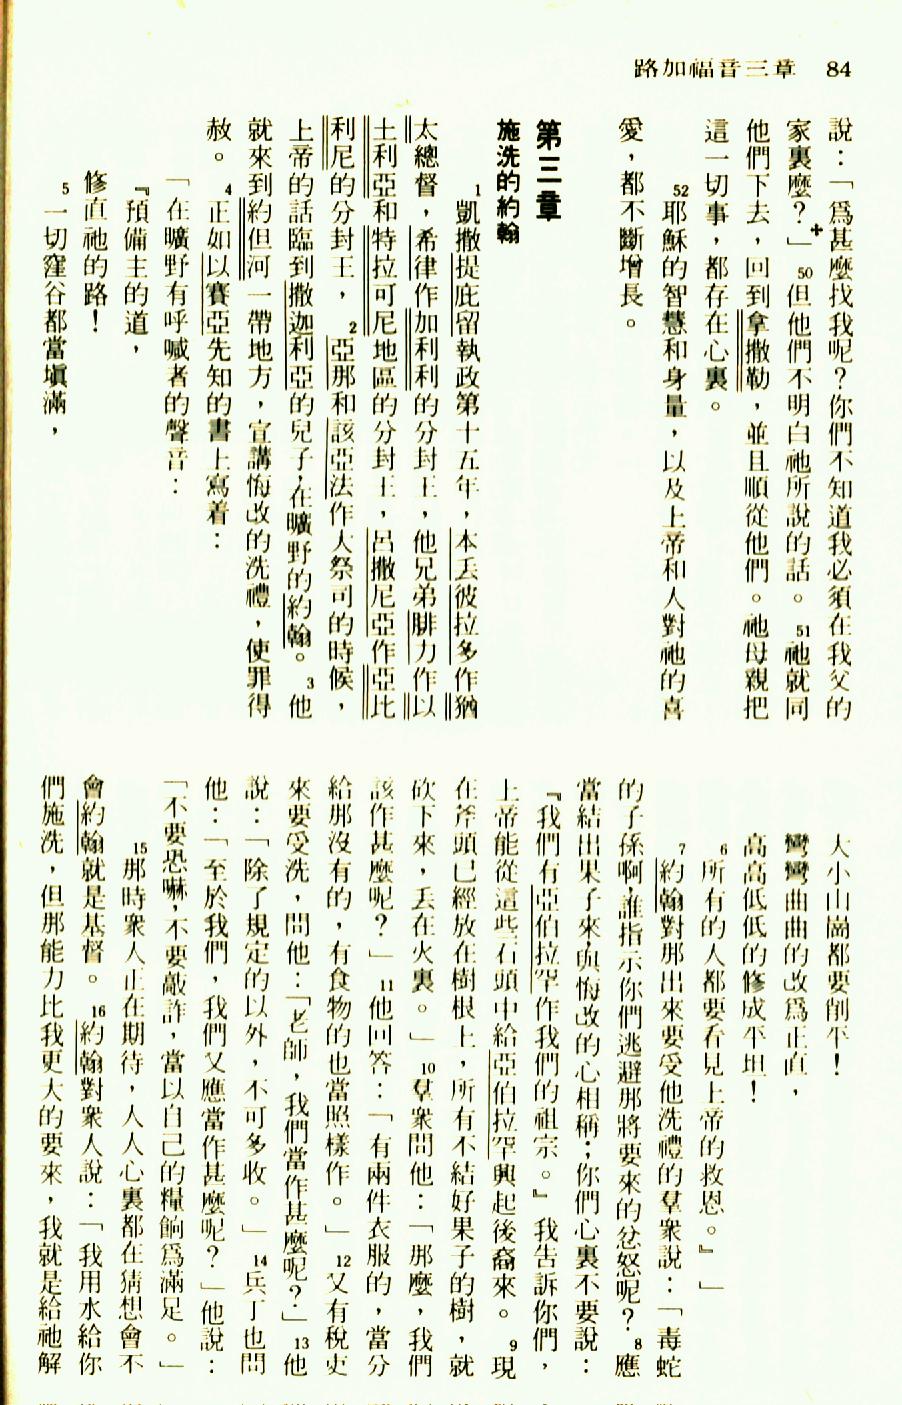 路加福音三章 84
說：「爲甚麼找我呢？你們不知道我必須在我父的
家裏麼？」✚50但他們不明白祂所說的話。51祂就同
他們下去，回到拿撒勒，並且順從他們。祂母親把
這一切事，都存在心裏。
52耶穌的智慧和身量，以及上帝和人對祂的喜
愛，都不斷增長。
第三章
施洗的約翰
1凱撒提庇留執政第十五年，本丟彼拉多作猶
太總督，希律作加利利的分封王，他兄弟腓力作以
土利亞和特拉可尼地區的分封王，呂撒尼亞作亞比
利尼的分封王，2亞那和該亞法作大祭司的時候，
上帝的話臨到撒迦利亞的兒子，在曠野的約翰。3他
就來到約但河一帶地方，宣講悔改的洗禮，使罪得
赦。4正如以賽亞先知的書上寫着：
「在曠野有呼喊者的聲音：
『預備主的道，
修直祂的路！
5一切窪谷都當塡滿，
大小山崗都要削平！
彎彎曲曲的改爲正直，
高高低低的修成平坦！
6所有的人都要看見上帝的救恩。』」
7約翰對那出來要受他洗禮的羣衆說：「毒蛇
的子孫啊，誰指示你們逃避那將要來的忿怒呢？8應
當結出果子來，與悔改的心相稱；你們心裏不要說：
『我們有亞伯拉罕作我們的祖宗。』我告訴你們，
上帝能從這些石頭中給亞伯拉罕興起後裔來。9現
在斧頭已經放在樹根上，所有不結好果子的樹，就
砍下來，丟在火裏。」10羣衆問他：「那麼，我們
該作甚麼呢？」11他回答：「有兩件衣服的，當分
給那沒有的，有食物的也當照樣作。」12又有稅吏
來要受洗，問他：「老師，我們當作甚麼呢？」13他
說：「除了規定的以外，不可多收。」14兵丁也問
他：「至於我們，我們又應當作甚麼呢？」他說：
「不要恐嚇，不要敲詐，當以自己的糧餉爲滿足。」
15那時衆人正在期待，人人心裏都在猜想會不
會約翰就是基督。16約翰對衆人說：「我用水給你
們施洗，但那能力比我更大的要來，我就是給祂解